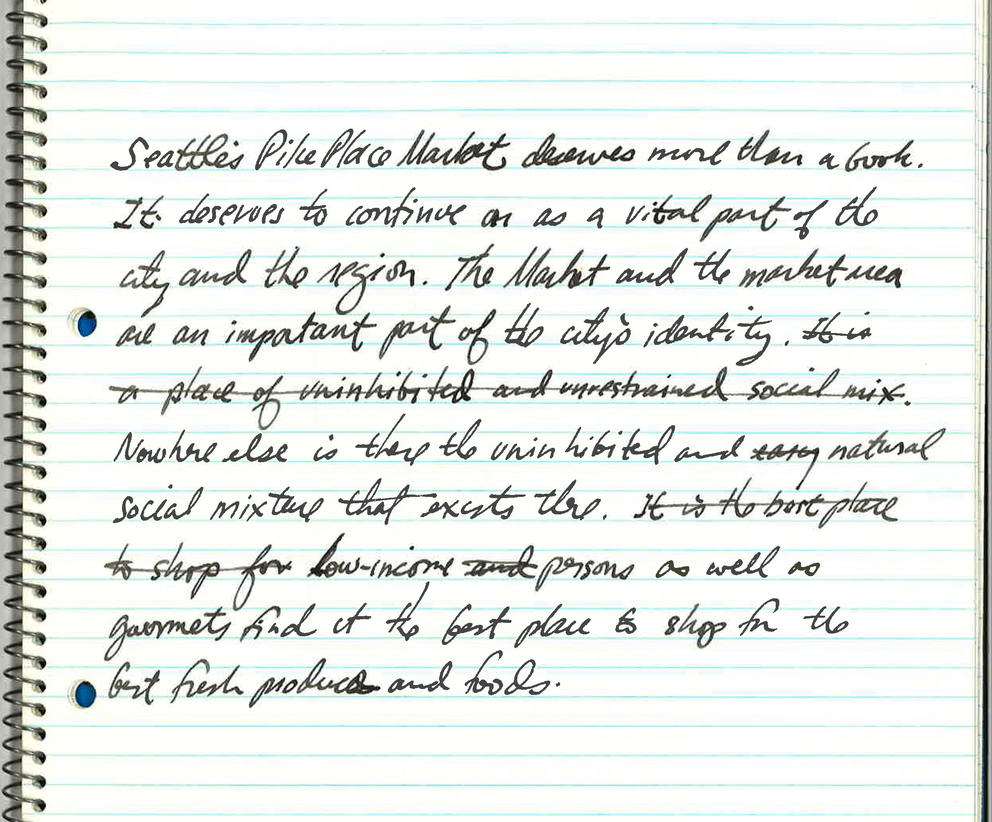 Seattle's Pike Place Market deserves more than a book.
It deserves to continue on as a vital part of the
city and the region. The Market and the market area
are an important part of the city's identity. It is
a place of uninhibited and unrestrained social mix.
Nowhere else is there the uninhibited and easy natural
social mixture that exists there. It is the best place
to shop for low-income and persons as well as
gourmets find it the best place to shop for the
best fresh produce and foods.